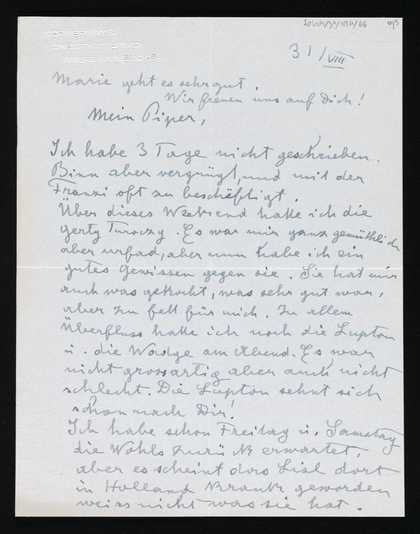 31/VIII
Marie geht es sehr gut.
Wir freuen uns auf Dich!
Mein Piper,
Ich habe 3 Tage nicht geschrieben.
Binn aber vergnügt, und mit der
Franzi oft zu beschäftigt.
Über dieses Weekend hatte ich die
Gerty Turoczy. Es war mir ganz gemüthlich
aber urfad, aber nun habe ich ein
gutes Gewissen gegen sie. Sie hat mir
auch was gekocht, was sehr gut war,
aber zu fett für mich. Zu allem
Überfluss hatte ich noch die Lupton
u. die Wadge am Abend. Es war
nicht grossartig aber auch nicht
schlecht. Die Lupton sehnt sich
schon nach Dir!
Ich habe schon Freitag u. Samstag
die Wohls zurück erwartet,
aber es scheint dass Lisl dort
in Holland krank geworden
weiss nicht was sie hat.